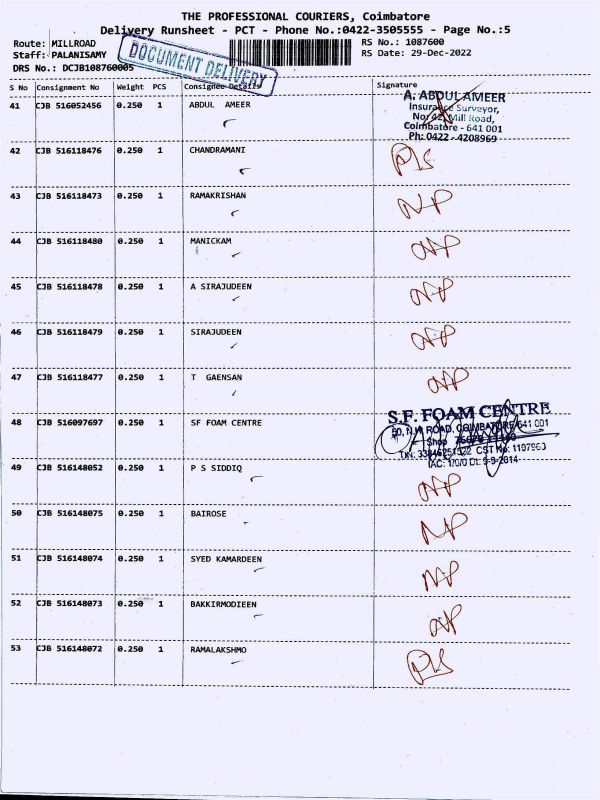 THE PROFESSIONAL COURIERS, Coimbatore
Delivery Runsheet - PCT - Phone No.:0422-3505555 - Page No.:5
Route: MILLROAD RS No.: 1087600
Staff: PALANISAMY RS Date: 29-Dec-2022
DRS No.: DCJB108760005
DOCUMENT DELIVERY
S No Consignment No Weight PCS Consignee Details Signature
41 CJB 516052456 0.250 1 ABDUL AMEER
A. ABDUL AMEER
Insurance Surveyor,
No: 42, Mill Road,
Coimbatore - 641 001
Ph: 0422 - 4208969
42 CJB 516118476 0.250 1 CHANDRAMANI
43 CJB 516118473 0.250 1 RAMAKRISHAN NP
44 CJB 516118480 0.250 1 MANICKAM NP
45 CJB 516118478 0.250 1 A SIRAJUDEEN NP
46 CJB 516118479 0.250 1 SIRAJUDEEN NP
47 CJB 516118477 0.250 1 T GAENSAN NP
48 CJB 516097697 0.250 1 SF FOAM CENTRE
S.F. FOAM CENTRE
50, N.H ROAD, COIMBATORE-641 001
Shop
CST No: 1197963
49 CJB 516148052 0.250 1 P S SIDDIQ NP
50 CJB 516148075 0.250 1 BAIROSE NP
51 CJB 516148074 0.250 1 SYED KAMARDEEN NP
52 CJB 516148073 0.250 1 BAKKIRMODIEEN NP
53 CJB 516148072 0.250 1 RAMALAKSHMO